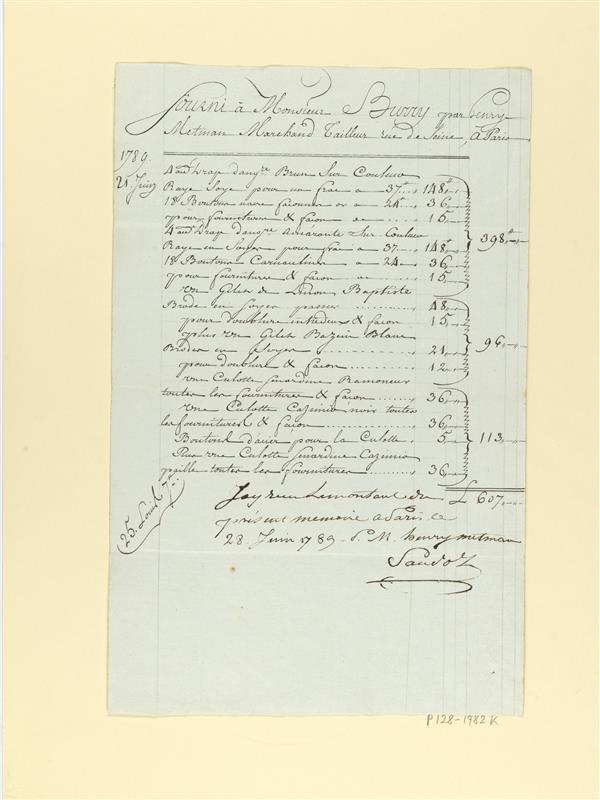 fourni à Monsieur Burry par henry
Metman Marchand Tailleur rue de Seine, à Paris
1789.
21 Juin
4 au Drap dang.re Brun Sur Couleur
Raye Soye pour un frac a 37# 148#
18 Boutons façonner or a 24 36
pour fourniture & façon 15
4 au Drap dang.re Amarante Sur Couleur
Raye en Soyer pour frac a 37 148#
398#
18 Boutons a 24 36
pour fourniture & façon 15
un Gilet de Linon Baptiste
Brode en Soyer passer 48
pour doublure & façon 15
plus un Gilet Bazin Blanc
96
Broder en Soyer 21
pour doublure & façon 12
une Culotte Ramoneur
toutes les fournitures & façon 36
une Culotte Cazimir noir toutes
les fournitures & façon 36
Boutons d'acier pour la Culotte 5
113
Plus une Culotte Cazimir
paille toutes les fournitures 36
£ 607
25. Louis 7#
J'ay reçu Le montant du
présent memoire a Paris le
28 Juin 1789 P. M. henry metman
Sandoz
P128-1982 K